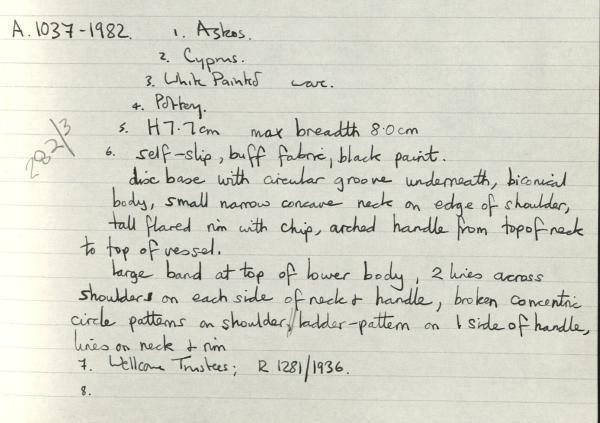 A.1037-1982. 1. Askos.
2. Cyprus.
3. White Painted ware.
4. Pottery.
5. H7.7cm max breadth 8.0cm
282/3
6. self-slip, buff fabric, black paint.
disc base with circular groove underneath, biconical
body, small narrow concave neck on edge of shoulder,
tall flared rim with chip, arched handle from top of neck
to top of vessel.
large band at top of lower body, 2 lines across
shoulders on each side of neck & handle, broken concentric
circle patterns on shoulder, ladder-pattern on 1 side of handle,
lines on neck & rim
7. Wellcome Trustees; R 1281/1936.
8.